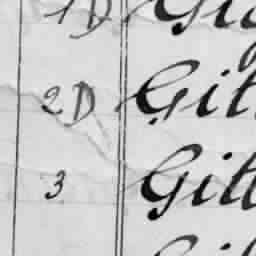 1D Gi
2D Git
3 Gitt